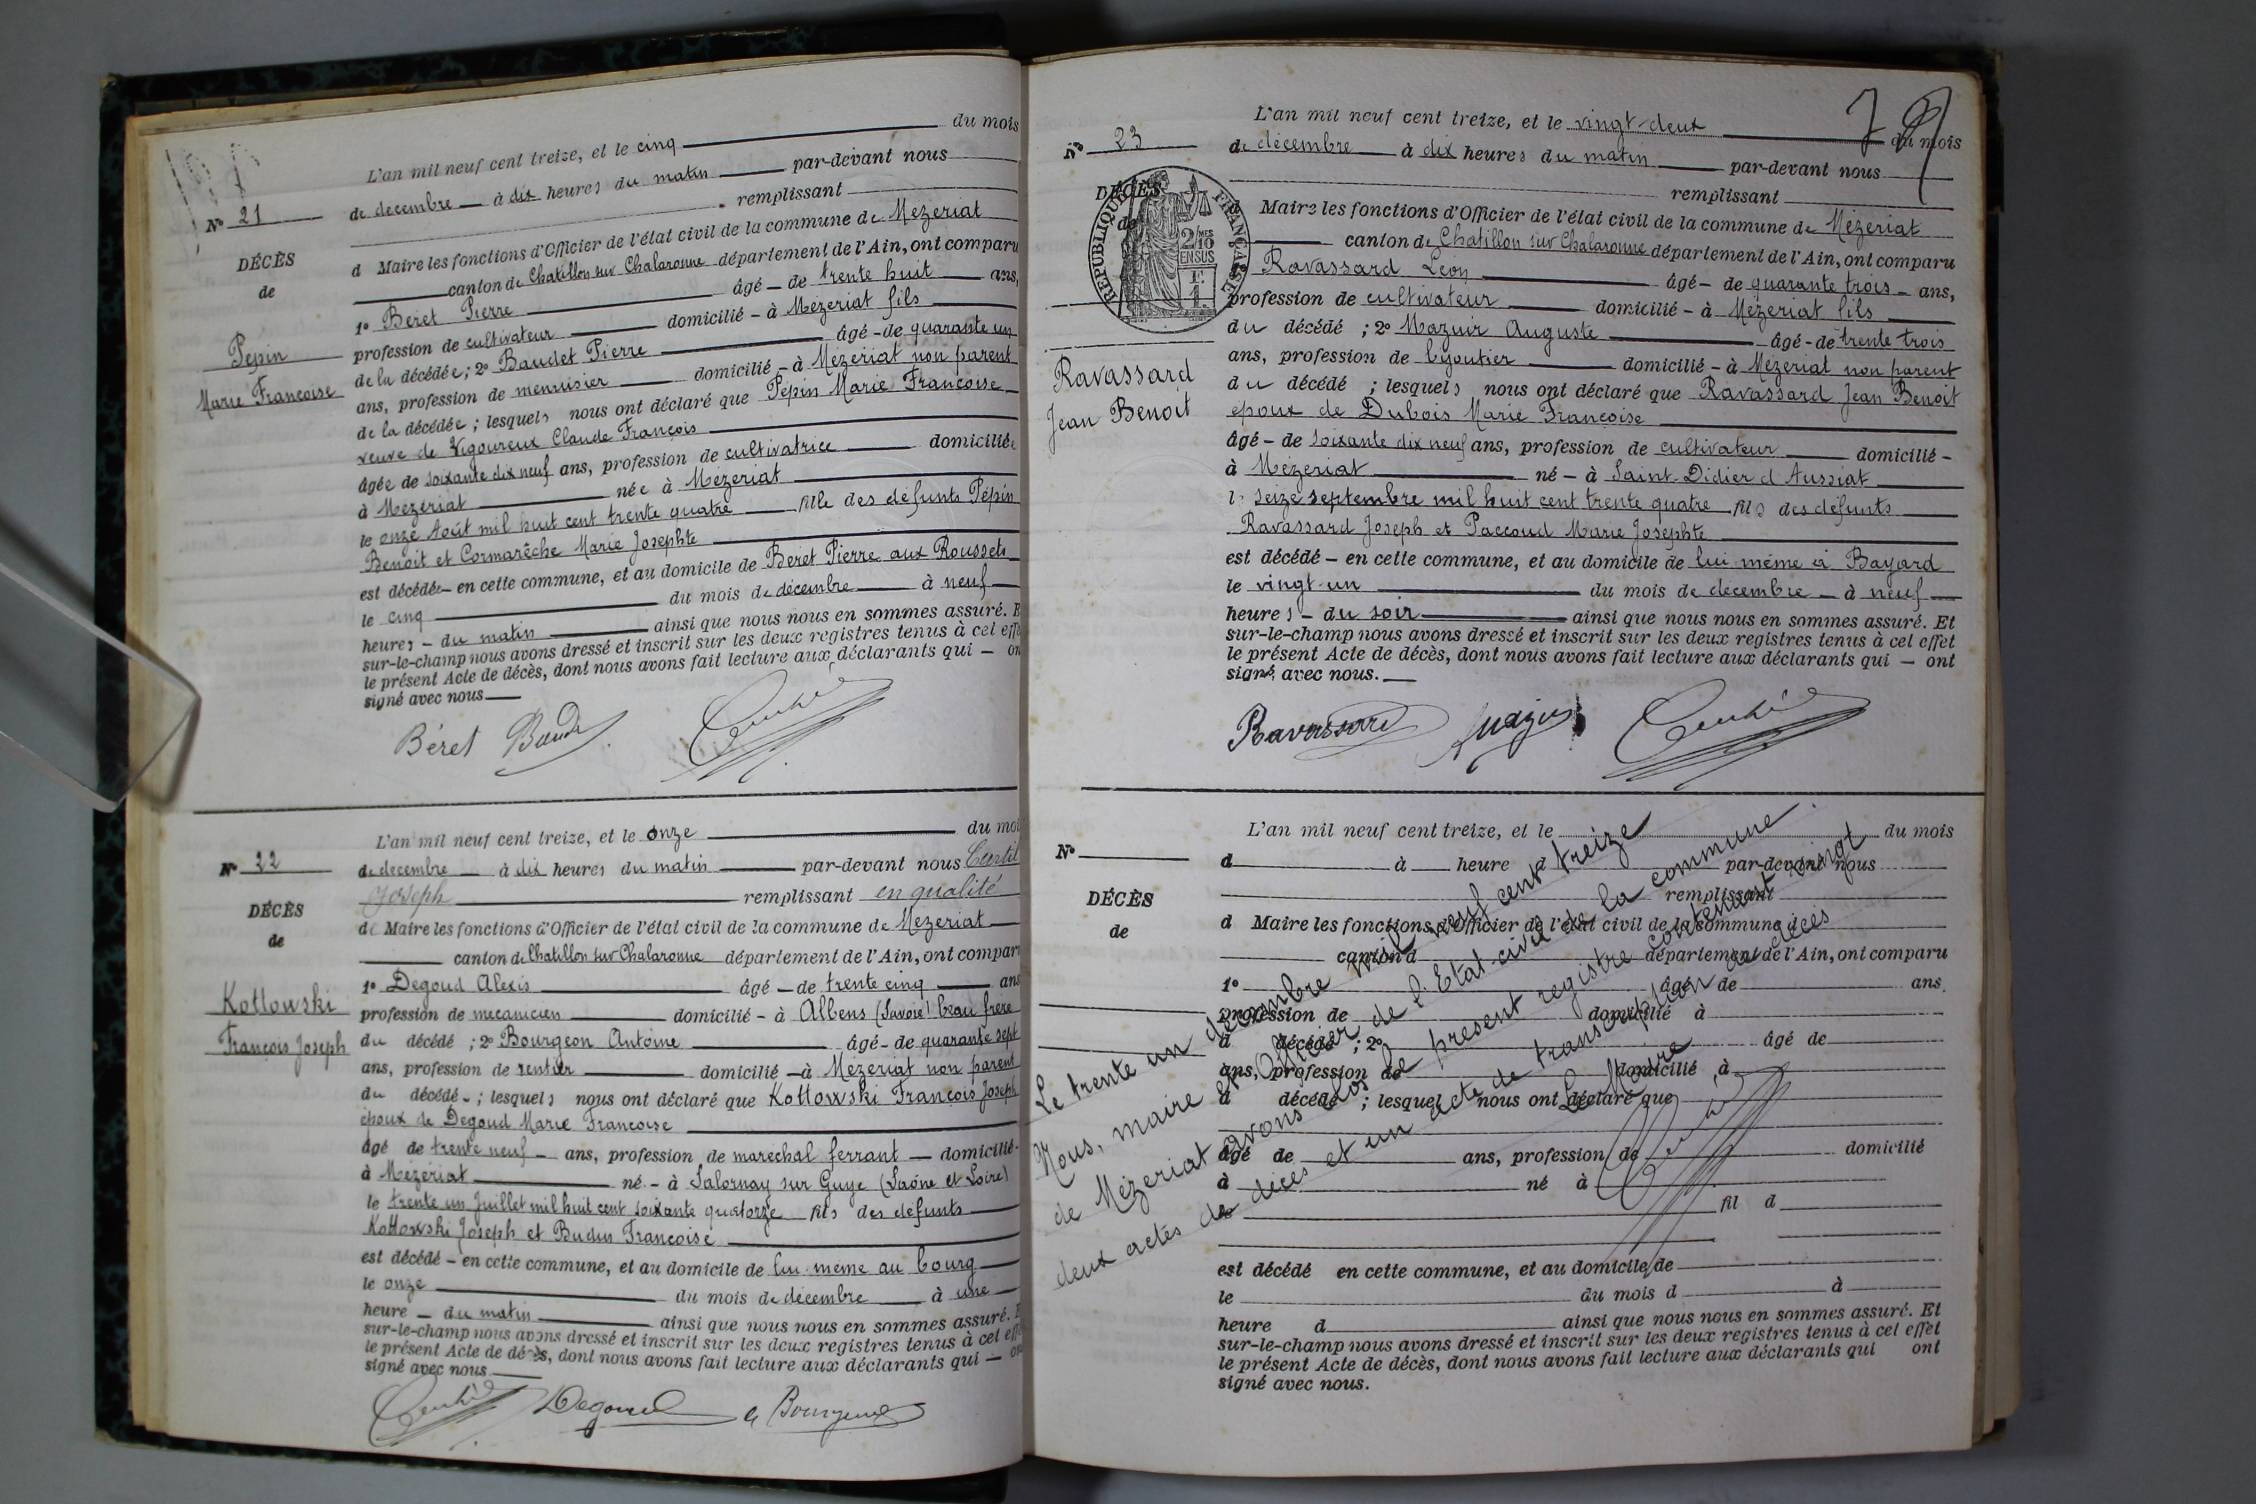 L'an mil neuf cent treize, et le cinq du mois
de decembre à dix heures du matin par-devant nous
remplissant
d Maire les fonctions d'Officier de l'état civil de la commune de Mézeriat
canton de Chatillon sur Chalaronne département de l'Ain, ont comparu
1° Béret Pierre âgé de trente huit ans,
profession de cultivateur domicilié - à Mézeriat fils
de la décédée; 2° Baudet Pierre âgé - de quarante un
ans, profession de menuisier domicilié - à Mézeriat non parent
de la décédée; lesquels nous ont déclaré que Pépin Marie Françoise
veuve de Vigoureux Claude François
âgée de soixante dix neuf ans, profession de cultivatrice domiciliée
à Mézeriat née à Mézeriat
le onze Août mil huit cent trente quatre fille des défunts Pépin
Benoit et Cormarêche Marie Josephte
est décédée - en cette commune, et au domicile de Béret Pierre aux Roussets
le cinq du mois de décembre à neuf
heures - du matin ainsi que nous nous en sommes assuré. E
sur-le-champ nous avons dressé et inscrit sur les deux registres tenus à cet effe
le présent Acte de décès, dont nous avons fait lecture aux déclarants qui - on
signé avec nous
Béret
N° 21
DÉCÈS
de
Pépin
Marie Françoise
L'an mil neuf cent treize, et le onze du moi
de decembre à dix heures du matin par-devant nous
Joseph remplissant en qualité
de Maire les fonctions d'Officier de l'état civil de la commune de Mézeriat
canton de Chatillon sur Chalaronne département de l'Ain, ont compar
1° Degoud Alexis âgé - de trente cinq ans
profession de mecanicien domicilié - à Albens (Savoie) beau frère
du décédé; 2° Bourgeon Antoine âgé - de quarante sept
ans, profession de rentier domicilié - à Mézeriat non parent
du décédé -; lesquels nous ont déclaré que Kotlowski François Joseph
époux de Degoud Marie Françoise
âgé de trente neuf - ans, profession de maréchal ferrant - domicilié
à Mézériat né - à Salornay sur Guye (Saône et Loire)
le trente un Juillet mil huit cent soixante quatorze fils des défunts
Kotlowski Joseph et Françoise
est décédé - en cette commune, et au domicile de lui même au bourg
le onze du mois de décembre à une
heure - du matin ainsi que nous nous en sommes assuré. E
sur-le-champ nous avons dressé et inscrit sur les deux registres tenus à cet effe
le présent Acte de décès, dont nous avons fait lecture aux déclarants qui - on
signé avec nous
Degoud Bourgeon
N° 22
DÉCÈS
de
Kotlowski
François Joseph
L'an mil neuf cent treize, et le vingt-deux du mois
de décembre à dix heures du matin par-devant nous
remplissant
Maire les fonctions d'Officier de l'état civil de la commune de Mézeriat
canton de Chatillon sur Chalaronne département de l'Ain, ont comparu
Ravassard Léon âgé - de quarante trois - ans,
profession de cultivateur domicilié - à Mézeriat fils
du décédé; 2° Mazuir Auguste âgé - de trente trois
ans, profession de bijoutier domicilié - à Mézeriat non parent
du décédé; lesquels nous ont déclaré que Ravassard Jean Benoit
époux de Dubois Marie Françoise
âgé - de soixante dix neuf ans, profession de cultivateur domicilié -
à Mézeriat né - à Saint-Didier d'Aussiat
le seize septembre mil huit cent trente quatre fils des défunts
Ravassard Joseph et Paccoud Marie Josephte
est décédé - en cette commune, et au domicile de lui même à Bayard
le vingt-un du mois de décembre - à neuf
heures - du soir ainsi que nous nous en sommes assuré. Et
sur-le-champ nous avons dressé et inscrit sur les deux registres tenus à cet effet
le présent Acte de décès, dont nous avons fait lecture aux déclarants qui - ont
signé avec nous.
Ravassard Mazuir
N° 23
DÉCÈS
de
RÉPUBLIQUE FRANÇAISE
2 MES
10
EN SUS
1 F.
Ravassard
Jean Benoit
L'an mil neuf cent treize, et le du mois
d à heure d par-devant nous
remplissant
d Maire les fonctions d'Officier de l'état civil de la commune d
canton d département de l'Ain, ont comparu
1° âgé de ans,
profession de domicilié à
d décédé; 2° âgé de
ans, profession de domicilié à
d décédé; lesquel nous ont déclaré que
âgé de ans, profession de domicilié
à né à
le fil d
est décédé en cette commune, et au domicile de
le du mois d à
heure d ainsi que nous nous en sommes assuré. Et
sur-le-champ nous avons dressé et inscrit sur les deux registres tenus à cet effet
le présent Acte de décès, dont nous avons fait lecture aux déclarants qui ont
signé avec nous.
N°
DÉCÈS
de
Le trente un décembre mil neuf cent treize
Nous, maire et Officier de l'Etat civil de la commune
de Mézeriat avons clos le présent registre contenant vingt
deux actes de décès et un acte de transcription de décès
Le Maire